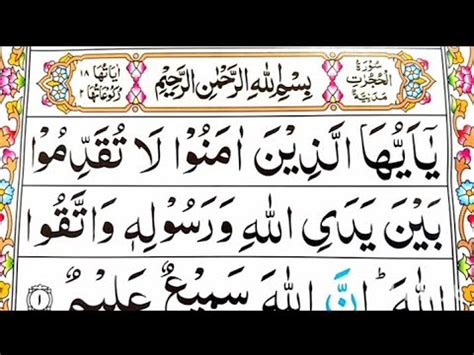 سُوْرَةُ
الْحُجُرٰتِ
مَدَنِيَّةٌ
بِسْمِ اللهِ الرَّحْمٰنِ الرَّحِيْمِ
اٰيَاتُهَا ١٨
رُكُوْعَاتُهَا ٢
يٰۤاَيُّهَا الَّذِيْنَ اٰمَنُوْا لَا تُقَدِّمُوْا
بَيْنَ يَدَيِ اللهِ وَرَسُوْلِهٖ وَاتَّقُوا
اللهَ ؕ اِنَّ اللهَ سَمِيْعٌ عَلِيْمٌ ١